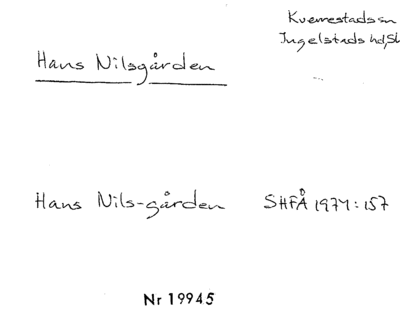 Kverrestads sn
Ingelstads hd, Sk
Hans Nilsgården
Hans Nils-gården SHFÅ 1974:157
Nr 19945